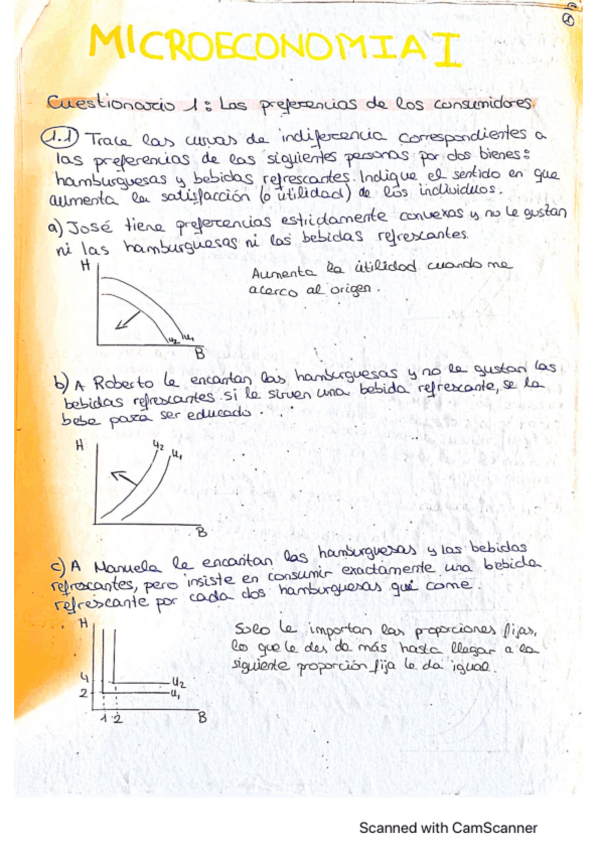 1
MICROECONOMIA I
Cuestionario 1: Las preferencias de los consumidores
1.1 Trace las curvas de indiferencia correspondientes a
las preferencias de las siguientes personas por dos bienes:
hamburguesas y bebidas refrescantes. Indique el sentido en que
aumenta la satisfacción (o utilidad) de los individuos.
a) José tiene preferencias estrictamente convexas y no le gustan
ni las hamburguesas ni las bebidas refrescantes.
H
Aumenta la útilidad cuando me
acerco al origen.
U2 U1
B
b) A Roberto le encantan las hamburguesas y no le gustan las
bebidas refrescantes. si le sirven una bebida refrescante, se la
bebe para ser educado.
H
U2
U1
B
c) A Manuela le encantan las hamburguesas y las bebidas
refrescantes, pero insiste en consumir exactamente una bebida
refrescante por cada dos hamburguesas que come.
H
Solo le importan las proporciones fijas,
lo que le des de más hasta llegar a la
siguiente proporción fija le da igual.
4
U2
2
U1
1 2
B
Scanned with CamScanner